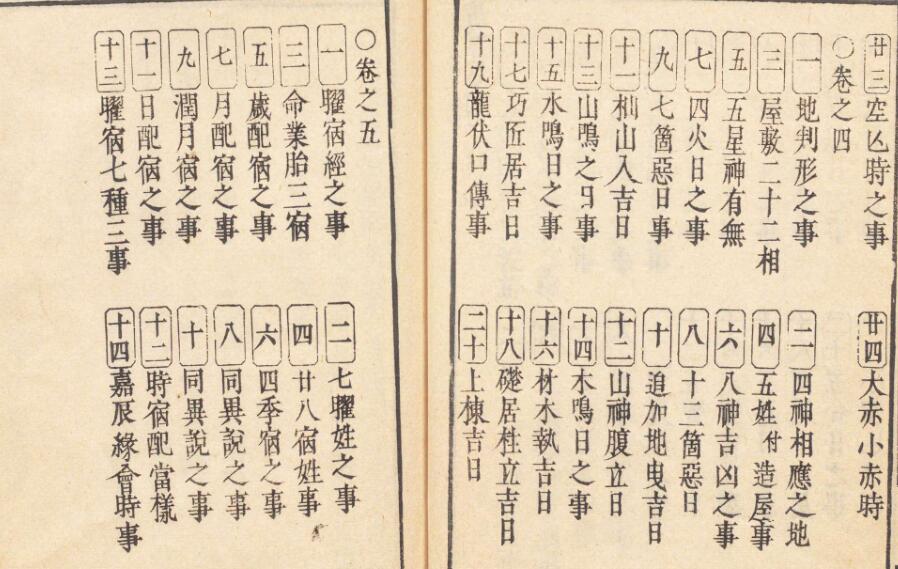 廿三 空亾時之事 廿四 大赤小赤時
〇卷之四
一 地判形之事 二 四神相應之地
三 屋敷二十二相 四 五姓付造屋事
五 五星神有無 六 八神吉凶之事
七 四火日之事 八 十三箇惡日
九 七箇惡日事 十 追加地曳吉日
十一 杣山入吉日 十二 山神腹立日
十三 山鳴之日事 十四 木鳴日之事
十五 水鳴日之事 十六 材木執吉日
十七 巧匠居吉日 十八 礎居柱立吉日
十九 龍伏口傳事 二十 上棟吉日
〇卷之五
一 曜宿經之事 二 七曜姓之事
三 命業胎三宿 四 廿八宿姓事
五 歲配宿之事 六 四季宿之事
七 月配宿之事 八 同異說之事
九 潤月宿之事 十 同異說之事
十一 日配宿之事 十二 時宿配當樣
十三 曜宿七種三事 十四 嘉辰緣會時事